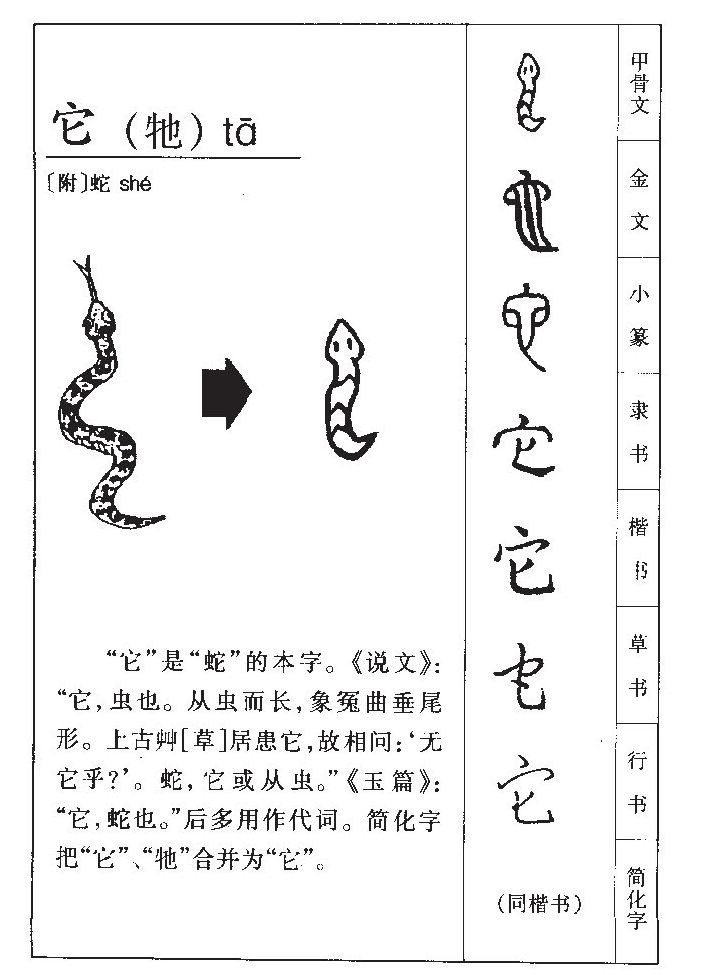 它（牠）tā
〔附〕蛇 shé
“它”是“蛇”的本字。《说文》：
“它，虫也。从虫而长，象冤曲垂尾
形。上古艸[草]居患它，故相问：‘无
它乎？’。蛇，它或从虫。”《玉篇》：
“它，蛇也。”后多用作代词。简化字
把“它”、“牠”合并为“它”。
甲骨文
金文
小篆
隶书
它
楷书
它
草书
它
行书
它
简化字
（同楷书）